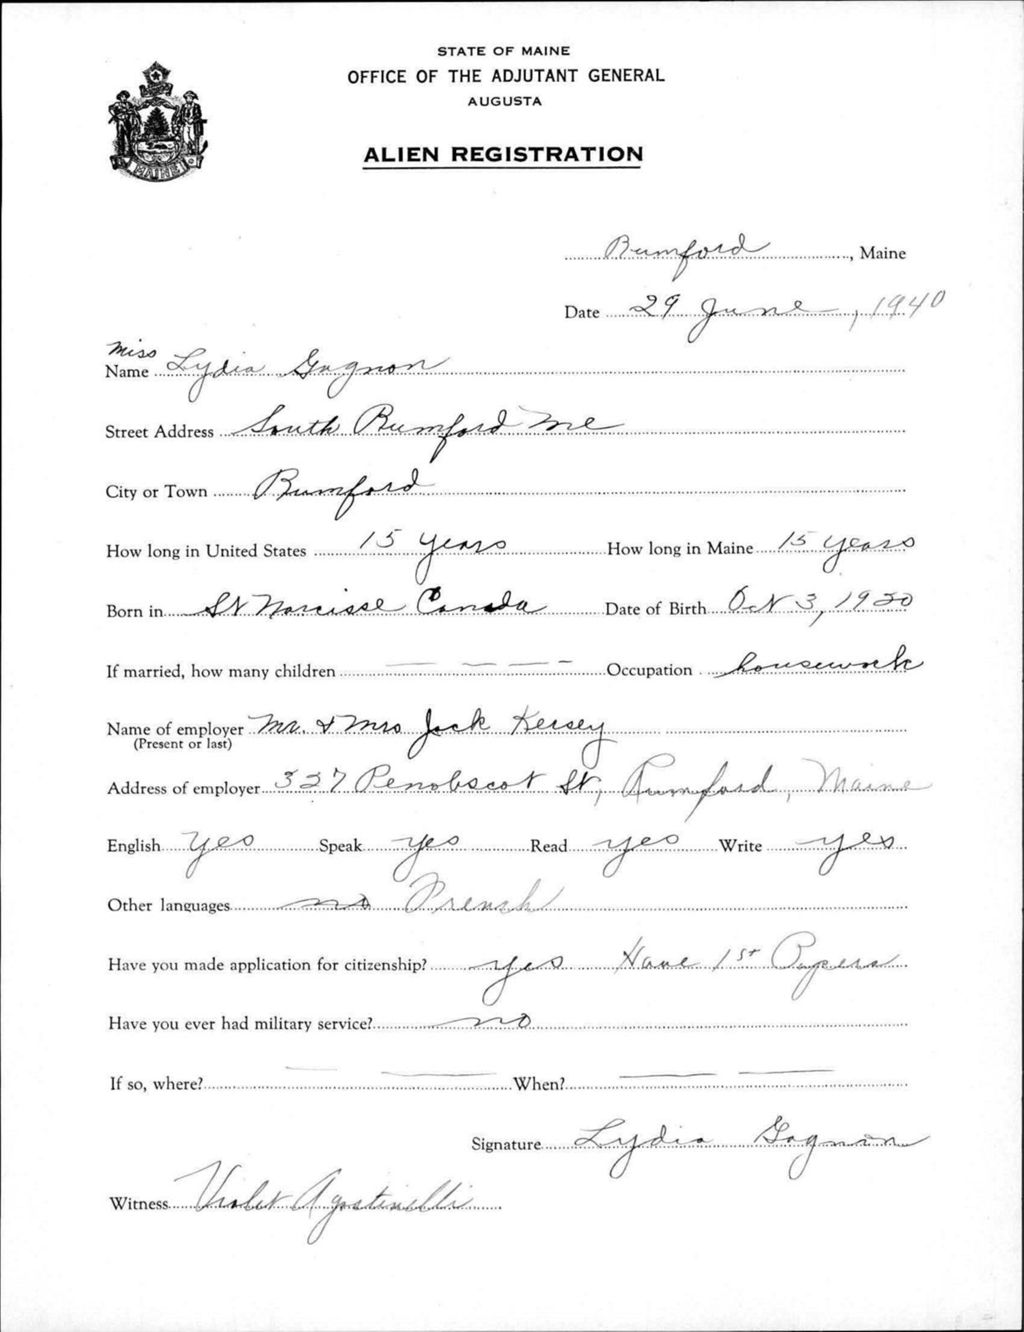 STATE OF MAINE
OFFICE OF THE ADJUTANT GENERAL
AUGUSTA
ALIEN REGISTRATION
MAINE
Rumford, Maine
Date 29 June, 1940
Miss
Name Lydia Gagnon
Street Address South Rumford Me
City or Town Rumford
How long in United States 15 years How long in Maine 15 years
Born in St Narcisse Canada Date of Birth Oct 3, 1920
If married, how many children — — — — Occupation housework
Name of employer Mr. & Mrs Jack Kersey
(Present or last)
Address of employer 327 Penobscot St, Rumford, Maine
English yes Speak yes Read yes Write yes
Other languages no French
Have you made application for citizenship? yes Have 1st Papers
Have you ever had military service? no
If so, where? — — When? — —
Signature Lydia Gagnon
Witness Violet Agostinelli